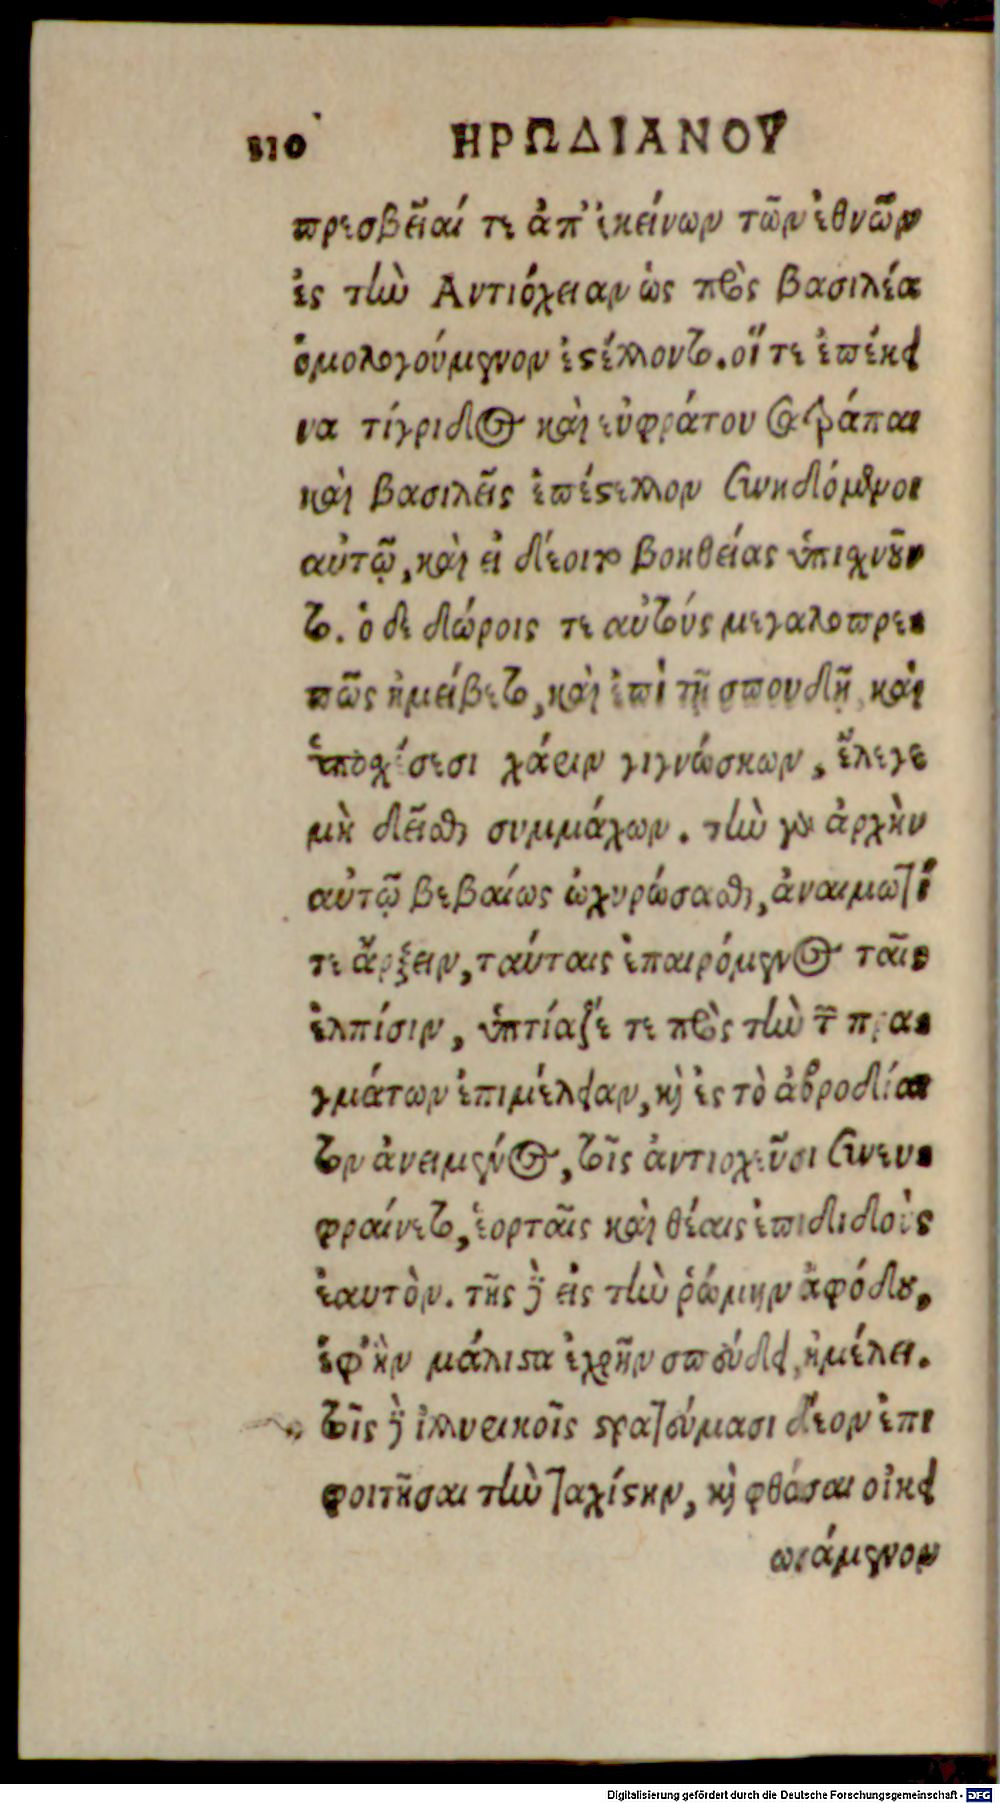 110 ΗΡΩΔΙΑΝΟΥ
πρεσβεῖαί τε ἀπ' ἐκείνων τῶν ἐθνῶν
ἐς τὴν Αντιόχειαν ὡς πρὸς βασιλέα
ὁμολογούμενον ἐστέλλοντο. οἵ τε ἐπέκει
να τίγριδος καὶ εὐφράτου σατράπαι
καὶ βασιλεῖς ἐπέστελλον συνηδόμενοι
αὐτῷ, καὶ εἰ δέοιτο βοηθείας ὑπισχνοῦν
το. ὁ δε δώροις τε αὐτούς μεγαλοπρε
πῶς ἠμείβετο, καὶ ἐπὶ τῇ σπουδῇ, καὶ
ὑποσχέσεσι χάριν γιγνώσκων, ἔλεγε
μὴ δεῖσθαι συμμάχων. τὴν γὰρ ἀρχὴν
αὐτῷ βεβαίως ὠχυρώσασθαι, ἀναιμωτί
τε ἄρξειν, ταύταις ἐπαιρόμενος ταῖς
ἐλπίσιν, ὑπτίαζέ τε πρὸς τὴν τῶν πρα
γμάτων ἐπιμέλειαν, καὶ ἐς τὸ ἁβροδίαι
τον ἀνειμένος, τοῖς ἀντιοχεῦσι συνευ
φραίνετο, ἑορταῖς καὶ θέαις ἐπιδιδοὺς
ἑαυτὸν. τῆς δὲ εἰς τὴν ῥώμην ἀφόδου,
ἐφ' ἣν μάλιστα ἐχρῆν σπούδειν, ἠμέλει.
τοῖς δὲ ἰλλυρικοῖς στρατεύμασι δέον ἐπι
φοιτῆσαι τὴν ταχίστην, καὶ φθάσαι οἰκει
ωσάμενον
Digitalisierung gefördert durch die Deutsche Forschungsgemeinschaft - DFG